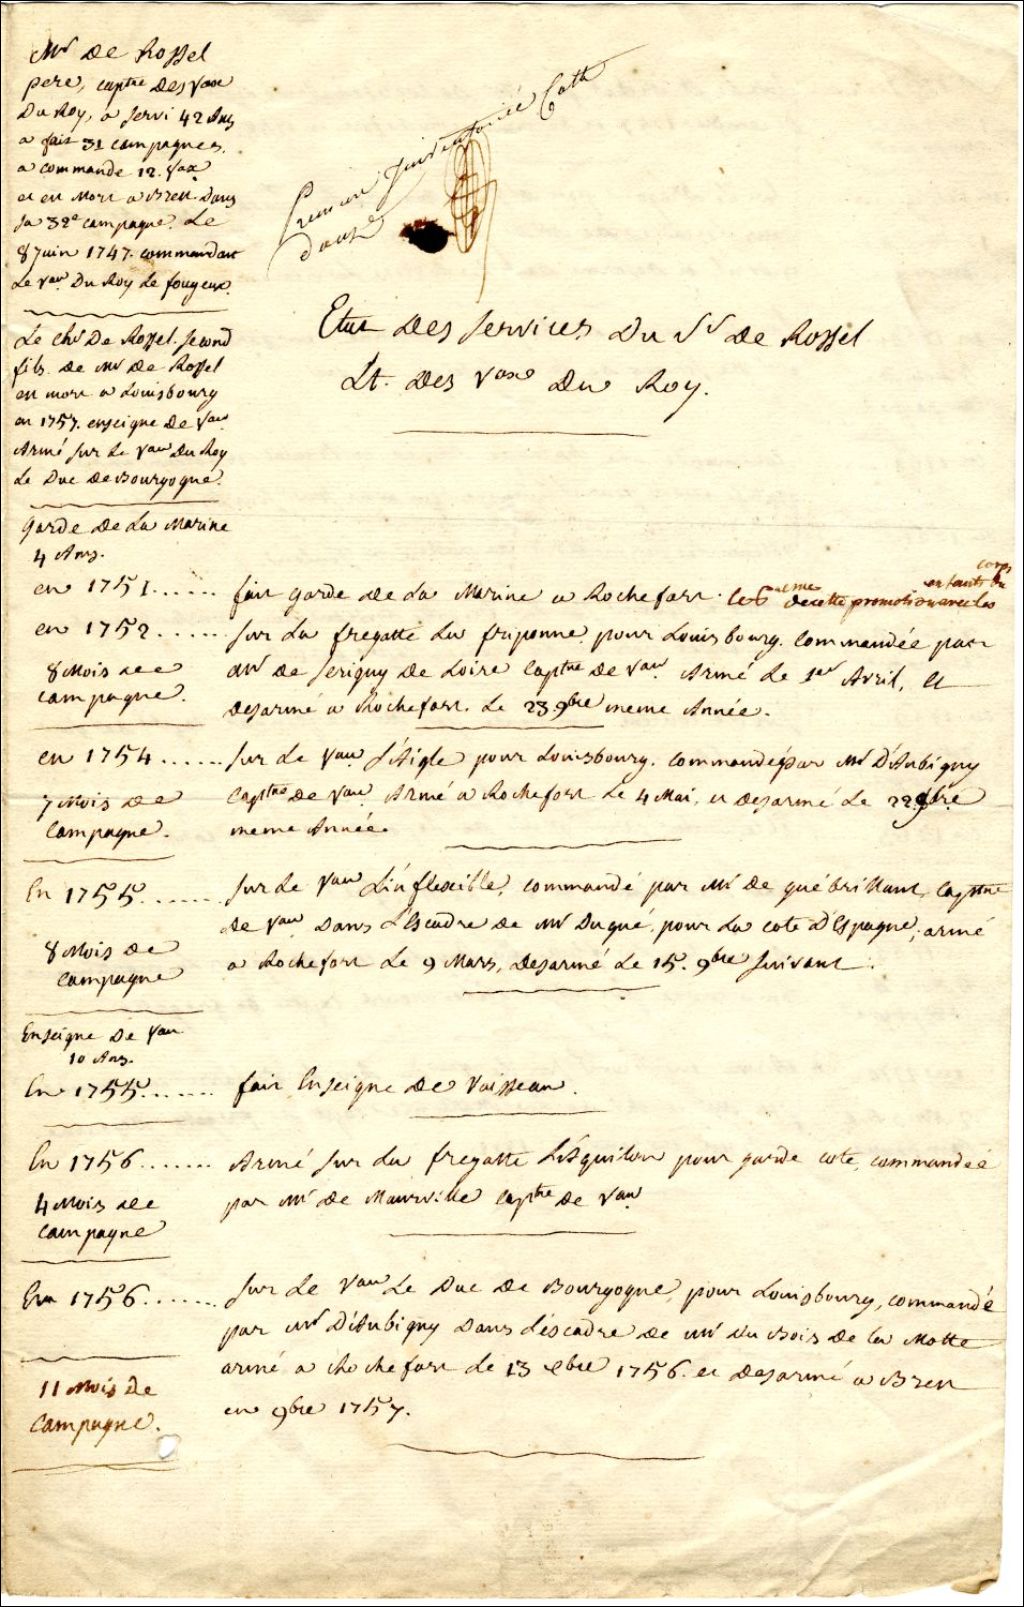 Mr de Rossel
pere, captne des vaux
Du Roy, a servi 42 Ans
a fait 31 campagnes.
a commandé 12. vaux
et est mort a Brest. Dans
sa 32e campagne. Le
8 juin 1747. commandant
Le vau Du Roy Le fougeux.
Le chr De Rossel. second
fils de Mr de Rossel
est mort a Louisbourg
en 1757. enseigne de vau
Armé sur Le vau Du Roy
Le Duc de Bourgogne.
Premiere
douze
Etat des services Du Sr de Rossel
Lt. des vaux Du Roy.
garde de La Marine
4 Ans.
en 1751...... fait garde de La Marine a Rochefort. Le 6eme de cette promotion avec les
enfants du
corps
en 1752...... sur La fregatte La friponne, pour Louisbourg. commandée par
8 Mois de Mr de Serigny de Loire captne de vau. Armé Le 1er Avril, et
campagne. desarmé a Rochefort. Le 23 9bre meme Année.
en 1754...... sur Le vau L'Aigle pour Louisbourg. commandé par Mr D'Aubigny
7 Mois de captne de vau. Armé a Rochefort Le 4 Mai, et desarmé Le 22 9bre
campagne. meme Année.
En 1755....... sur Le vau L'inflexible, commandé par Mr de Guébrillant, captne
de vau Dans L'Escadre de Mr Dugué, pour La cote d'Espagne; armé
8 Mois de a Rochefort Le 9 Mars, Desarmé Le 15. 9bre suivant.
campagne
Enseigne de vau
10 Ans.
En 1755....... fait Enseigne de Vaisseau.
En 1756....... Armé sur La fregatte L'Aquilon pour garde cote, commandée
4 Mois de par Mr de Maurville captne de vau
campagne
En 1756....... sur Le vau Le Duc De Bourgogne, pour Louisbourg, commandé
par Mr D'Aubigny Dans L'éscadre de Mr Du Bois de La Motte
armé a Rochefort Le 13 xbre 1756. et desarmé a Brest
11 Mois De en 9bre 1757.
campagne.